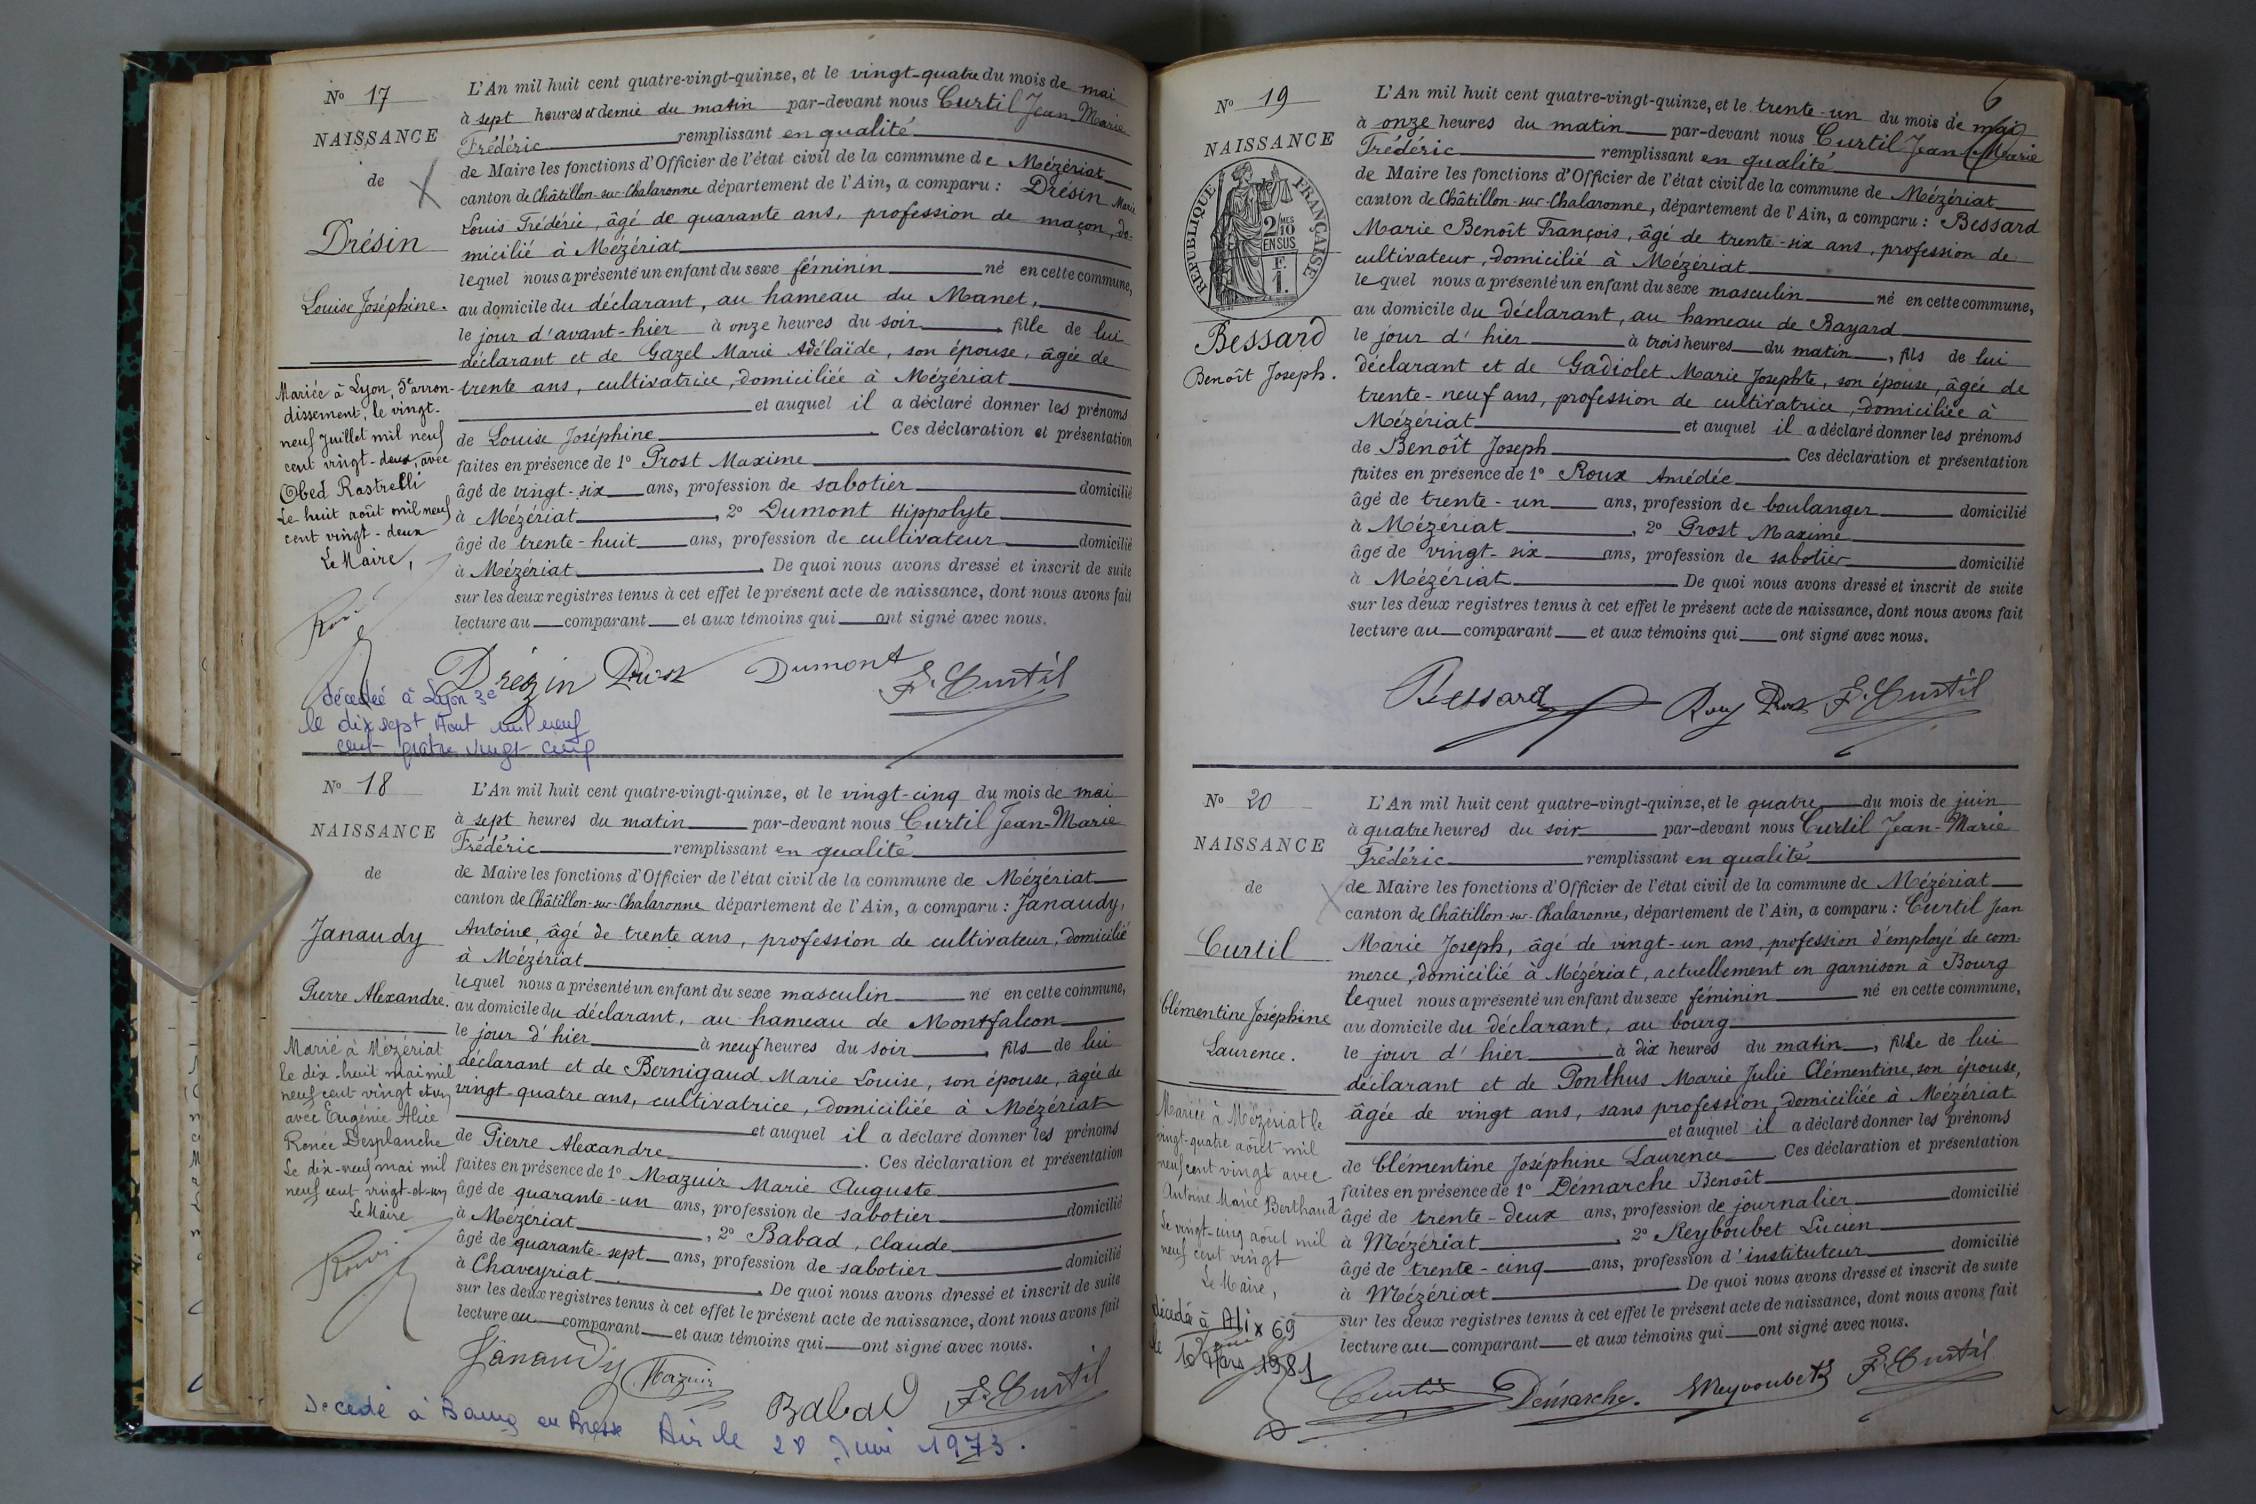 N° 17
NAISSANCE
de
Drésin
Louise Joséphine.
Mariée à Lyon, 5e arron-
dissement, le vingt-
neuf Juillet mil neuf
cent vingt-deux, avec
Obed Rastrelli
Le huit août mil neuf
cent vingt-deux
Le Maire,
L'An mil huit cent quatre-vingt-quinze, et le vingt-quatre du mois de mai
à sept heures et demie du matin par-devant nous Curtil Jean Marie
Frédéric remplissant en qualité
de Maire les fonctions d'Officier de l'état civil de la commune de Mézériat
canton de Châtillon-sur-Chalaronne département de l'Ain, a comparu : Drésin Marie
Louis Frédéric, âgé de quarante ans, profession de maçon, do-
micilié à Mézériat
lequel nous a présenté un enfant du sexe féminin né en cette commune,
au domicile du déclarant, au hameau du Manet,
le jour d'avant-hier à onze heures du soir, fille de lui
déclarant et de Gazel Marie Adélaïde, son épouse, âgée de
trente ans, cultivatrice, domiciliée à Mézériat
et auquel il a déclaré donner les prénoms
de Louise Joséphine. Ces déclaration et présentation
faites en présence de 1° Prost Maxime
âgé de vingt-six ans, profession de sabotier domicilié
à Mézériat, 2° Dumont Hippolyte
âgé de trente-huit ans, profession de cultivateur domicilié
à Mézériat. De quoi nous avons dressé et inscrit de suite
sur les deux registres tenus à cet effet le présent acte de naissance, dont nous avons fait
lecture au comparant et aux témoins qui ont signé avec nous.
Drézin Prost Dumont F. Curtil
décédée à Lyon 3e
le dix sept Aout mil neuf
cent quatre vingt cinq
N° 18
NAISSANCE
de
Janaudy
Pierre Alexandre.
Marié à Mézériat
le dix-huit mai mil
neuf cent vingt et un
avec Eugénie Alice
Renée Desplanche
Le dix-neuf mai mil
neuf cent vingt-et-un
Le Maire
L'An mil huit cent quatre-vingt-quinze, et le vingt-cinq du mois de mai
à sept heures du matin par-devant nous Curtil Jean-Marie
Frédéric remplissant en qualité
de Maire les fonctions d'Officier de l'état civil de la commune de Mézériat
canton de Châtillon-sur-Chalaronne département de l'Ain, a comparu : Janaudy,
Antoine, âgé de trente ans, profession de cultivateur, domicilié
à Mézériat
lequel nous a présenté un enfant du sexe masculin né en cette commune,
au domicile du déclarant, au hameau de Montfalcon
le jour d'hier à neuf heures du soir, fils de lui
déclarant et de Bernigaud Marie Louise, son épouse, âgée de
vingt-quatre ans, cultivatrice, domiciliée à Mézériat
et auquel il a déclaré donner les prénoms
de Pierre Alexandre. Ces déclaration et présentation
faites en présence de 1° Mazuir Marie Auguste
âgé de quarante-un ans, profession de sabotier domicilié
à Mézériat, 2° Babad, Claude
âgé de quarante-sept ans, profession de sabotier domicilié
à Chaveyriat. De quoi nous avons dressé et inscrit de suite
sur les deux registres tenus à cet effet le présent acte de naissance, dont nous avons fait
lecture au comparant et aux témoins qui ont signé avec nous.
Janaudy Mazuir Babad F. Curtil
Décédé à Bourg en Bresse Ain le 28 Juin 1973.
6
N° 19
NAISSANCE
REPUBLIQUE FRANÇAISE
2 MES
10
EN SUS
F.
1.
Bessard
Benoît Joseph.
L'An mil huit cent quatre-vingt-quinze, et le trente-un du mois de mai
à onze heures du matin par-devant nous Curtil Jean Marie
Frédéric remplissant en qualité
de Maire les fonctions d'Officier de l'état civil de la commune de Mézériat
canton de Châtillon-sur-Chalaronne, département de l'Ain, a comparu : Bessard
Marie Benoît François, âgé de trente-six ans, profession de
cultivateur, domicilié à Mézériat
lequel nous a présenté un enfant du sexe masculin né en cette commune,
au domicile du déclarant, au hameau de Bayard
le jour d'hier à trois heures du matin, fils de lui
déclarant et de Gadiolet Marie Josephte, son épouse, âgée de
trente-neuf ans, profession de cultivatrice, domiciliée à
Mézériat et auquel il a déclaré donner les prénoms
de Benoît Joseph. Ces déclaration et présentation
faites en présence de 1° Roux Amédée
âgé de trente-un ans, profession de boulanger domicilié
à Mézériat, 2° Prost Maxime
âgé de vingt-six ans, profession de sabotier domicilié
à Mézériat. De quoi nous avons dressé et inscrit de suite
sur les deux registres tenus à cet effet le présent acte de naissance, dont nous avons fait
lecture au comparant et aux témoins qui ont signé avec nous.
Bessard Roux Prost F. Curtil
N° 20
NAISSANCE
de
Curtil
Clémentine Joséphine
Laurence.
Mariée à Mézériat le
vingt-quatre août mil
neuf cent vingt avec
Antoine Marie Berthaud
Le vingt-cinq août mil
neuf cent vingt
Le Maire,
décédé à Alix 69
le 10 Mars 1981
L'An mil huit cent quatre-vingt-quinze, et le quatre du mois de juin
à quatre heures du soir par-devant nous Curtil Jean-Marie
Frédéric remplissant en qualité
de Maire les fonctions d'Officier de l'état civil de la commune de Mézériat
canton de Châtillon-sur-Chalaronne, département de l'Ain, a comparu : Curtil Jean
Marie Joseph, âgé de vingt-un ans, profession d'employé de com-
merce, domicilié à Mézériat, actuellement en garnison à Bourg
lequel nous a présenté un enfant du sexe féminin né en cette commune,
au domicile du déclarant, au bourg
le jour d'hier à dix heures du matin, fille de lui
déclarant et de Ponthus Marie Julie Clémentine, son épouse,
âgée de vingt ans, sans profession, domiciliée à Mézériat
et auquel il a déclaré donner les prénoms
de Clémentine Joséphine Laurence. Ces déclaration et présentation
faites en présence de 1° Démarche Benoît
âgé de trente-deux ans, profession de journalier domicilié
à Mézériat, 2° Reyboubet Lucien
âgé de trente-cinq ans, profession d'instituteur domicilié
à Mézériat. De quoi nous avons dressé et inscrit de suite
sur les deux registres tenus à cet effet le présent acte de naissance, dont nous avons fait
lecture au comparant et aux témoins qui ont signé avec nous.
Curtil Démarche. F. Curtil